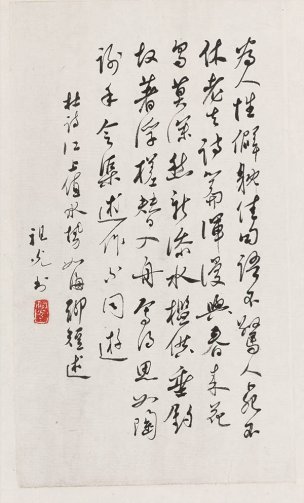 为人性僻耽佳句语不惊人死不
休老去诗篇浑漫与春来花
鸟莫深愁新添水槛供垂钓
故著浮槎替入舟焉得思如陶
谢手令渠述作与同游
杜诗江上值水势如海聊短述
祖光书